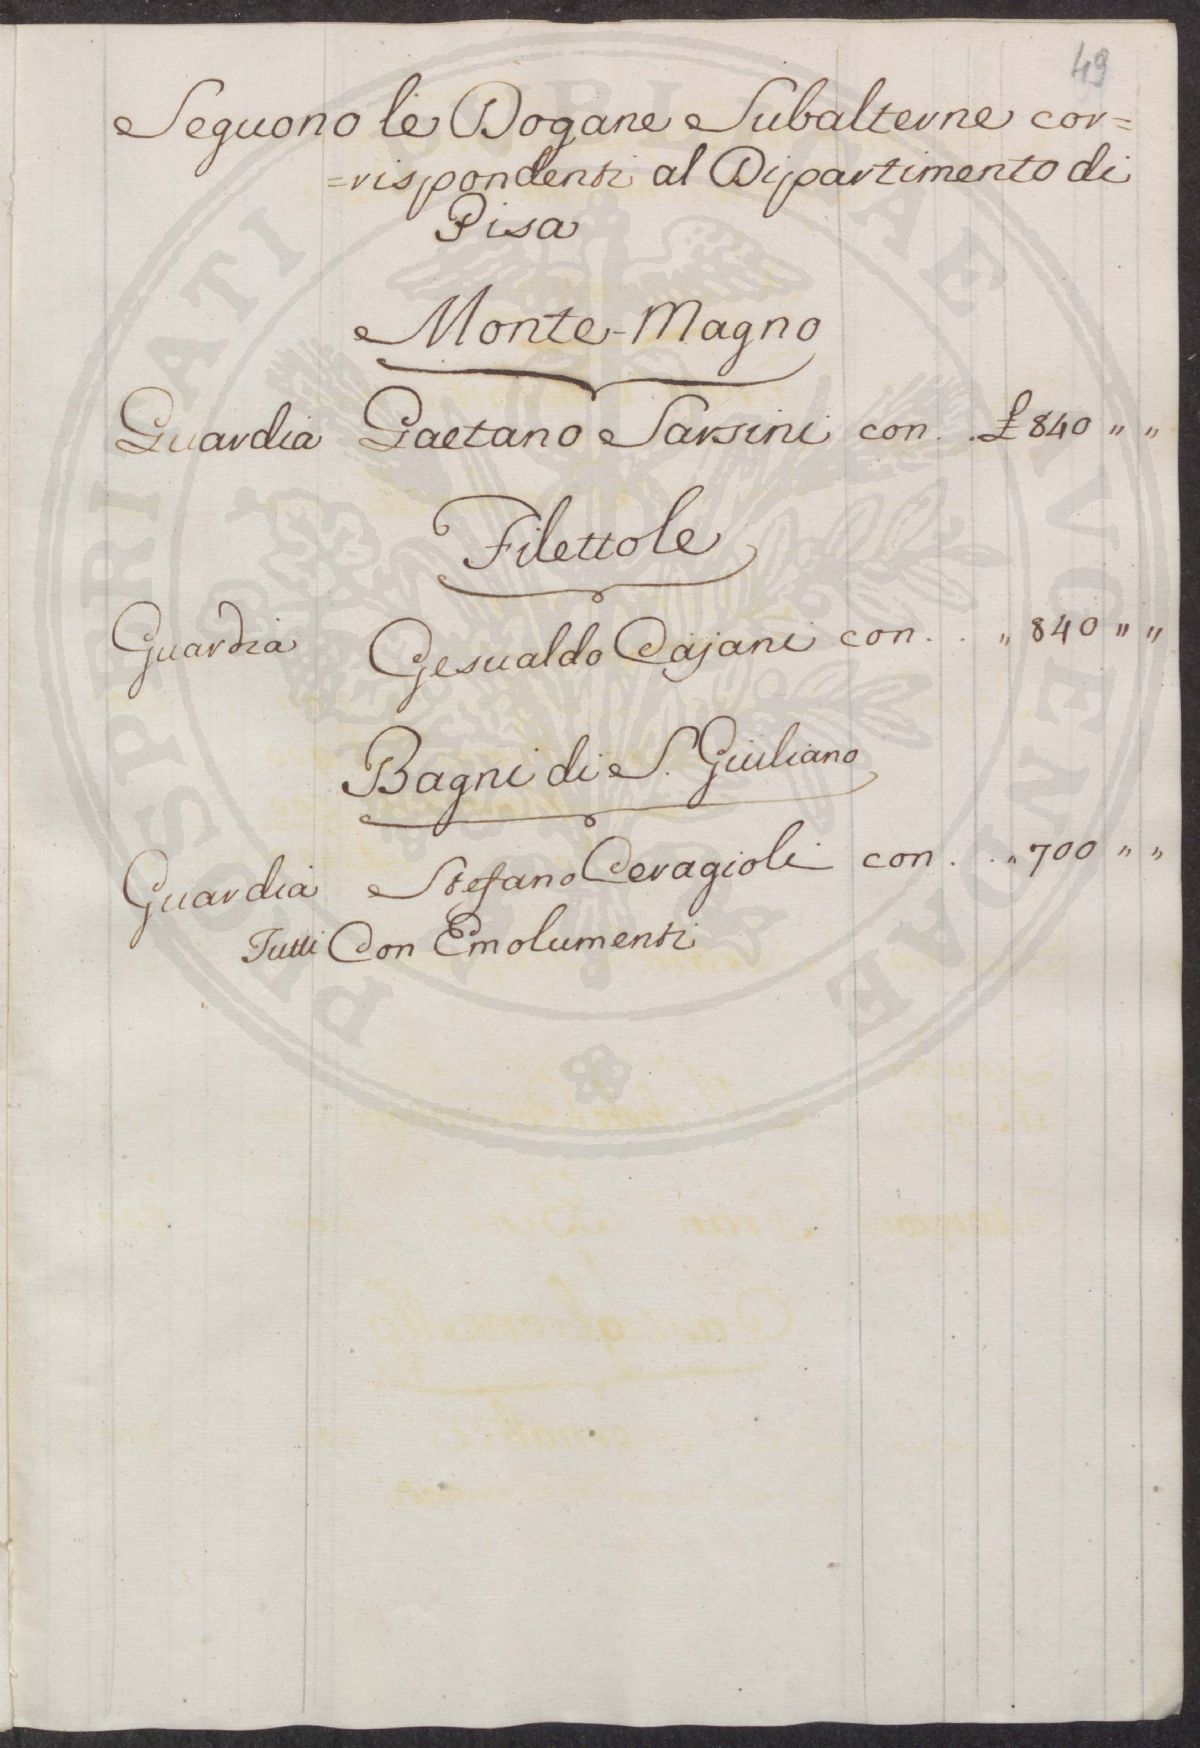 49
Seguono le Dogane Subalterne cor=
=rispondenti al Dipartimento di
Pisa
Monte-Magno
Guardia Gaetano Sarsini con . . £ 840 " "
Filettole
Guardia Gesualdo Cajani con . . " 840 " "
Bagni di S. Giuliano
Guardia Stefano Ceragioli con . . " 700 " "
Tutti Con Emolumenti
PROSPERITATI PUBLICAE AUGENDAE